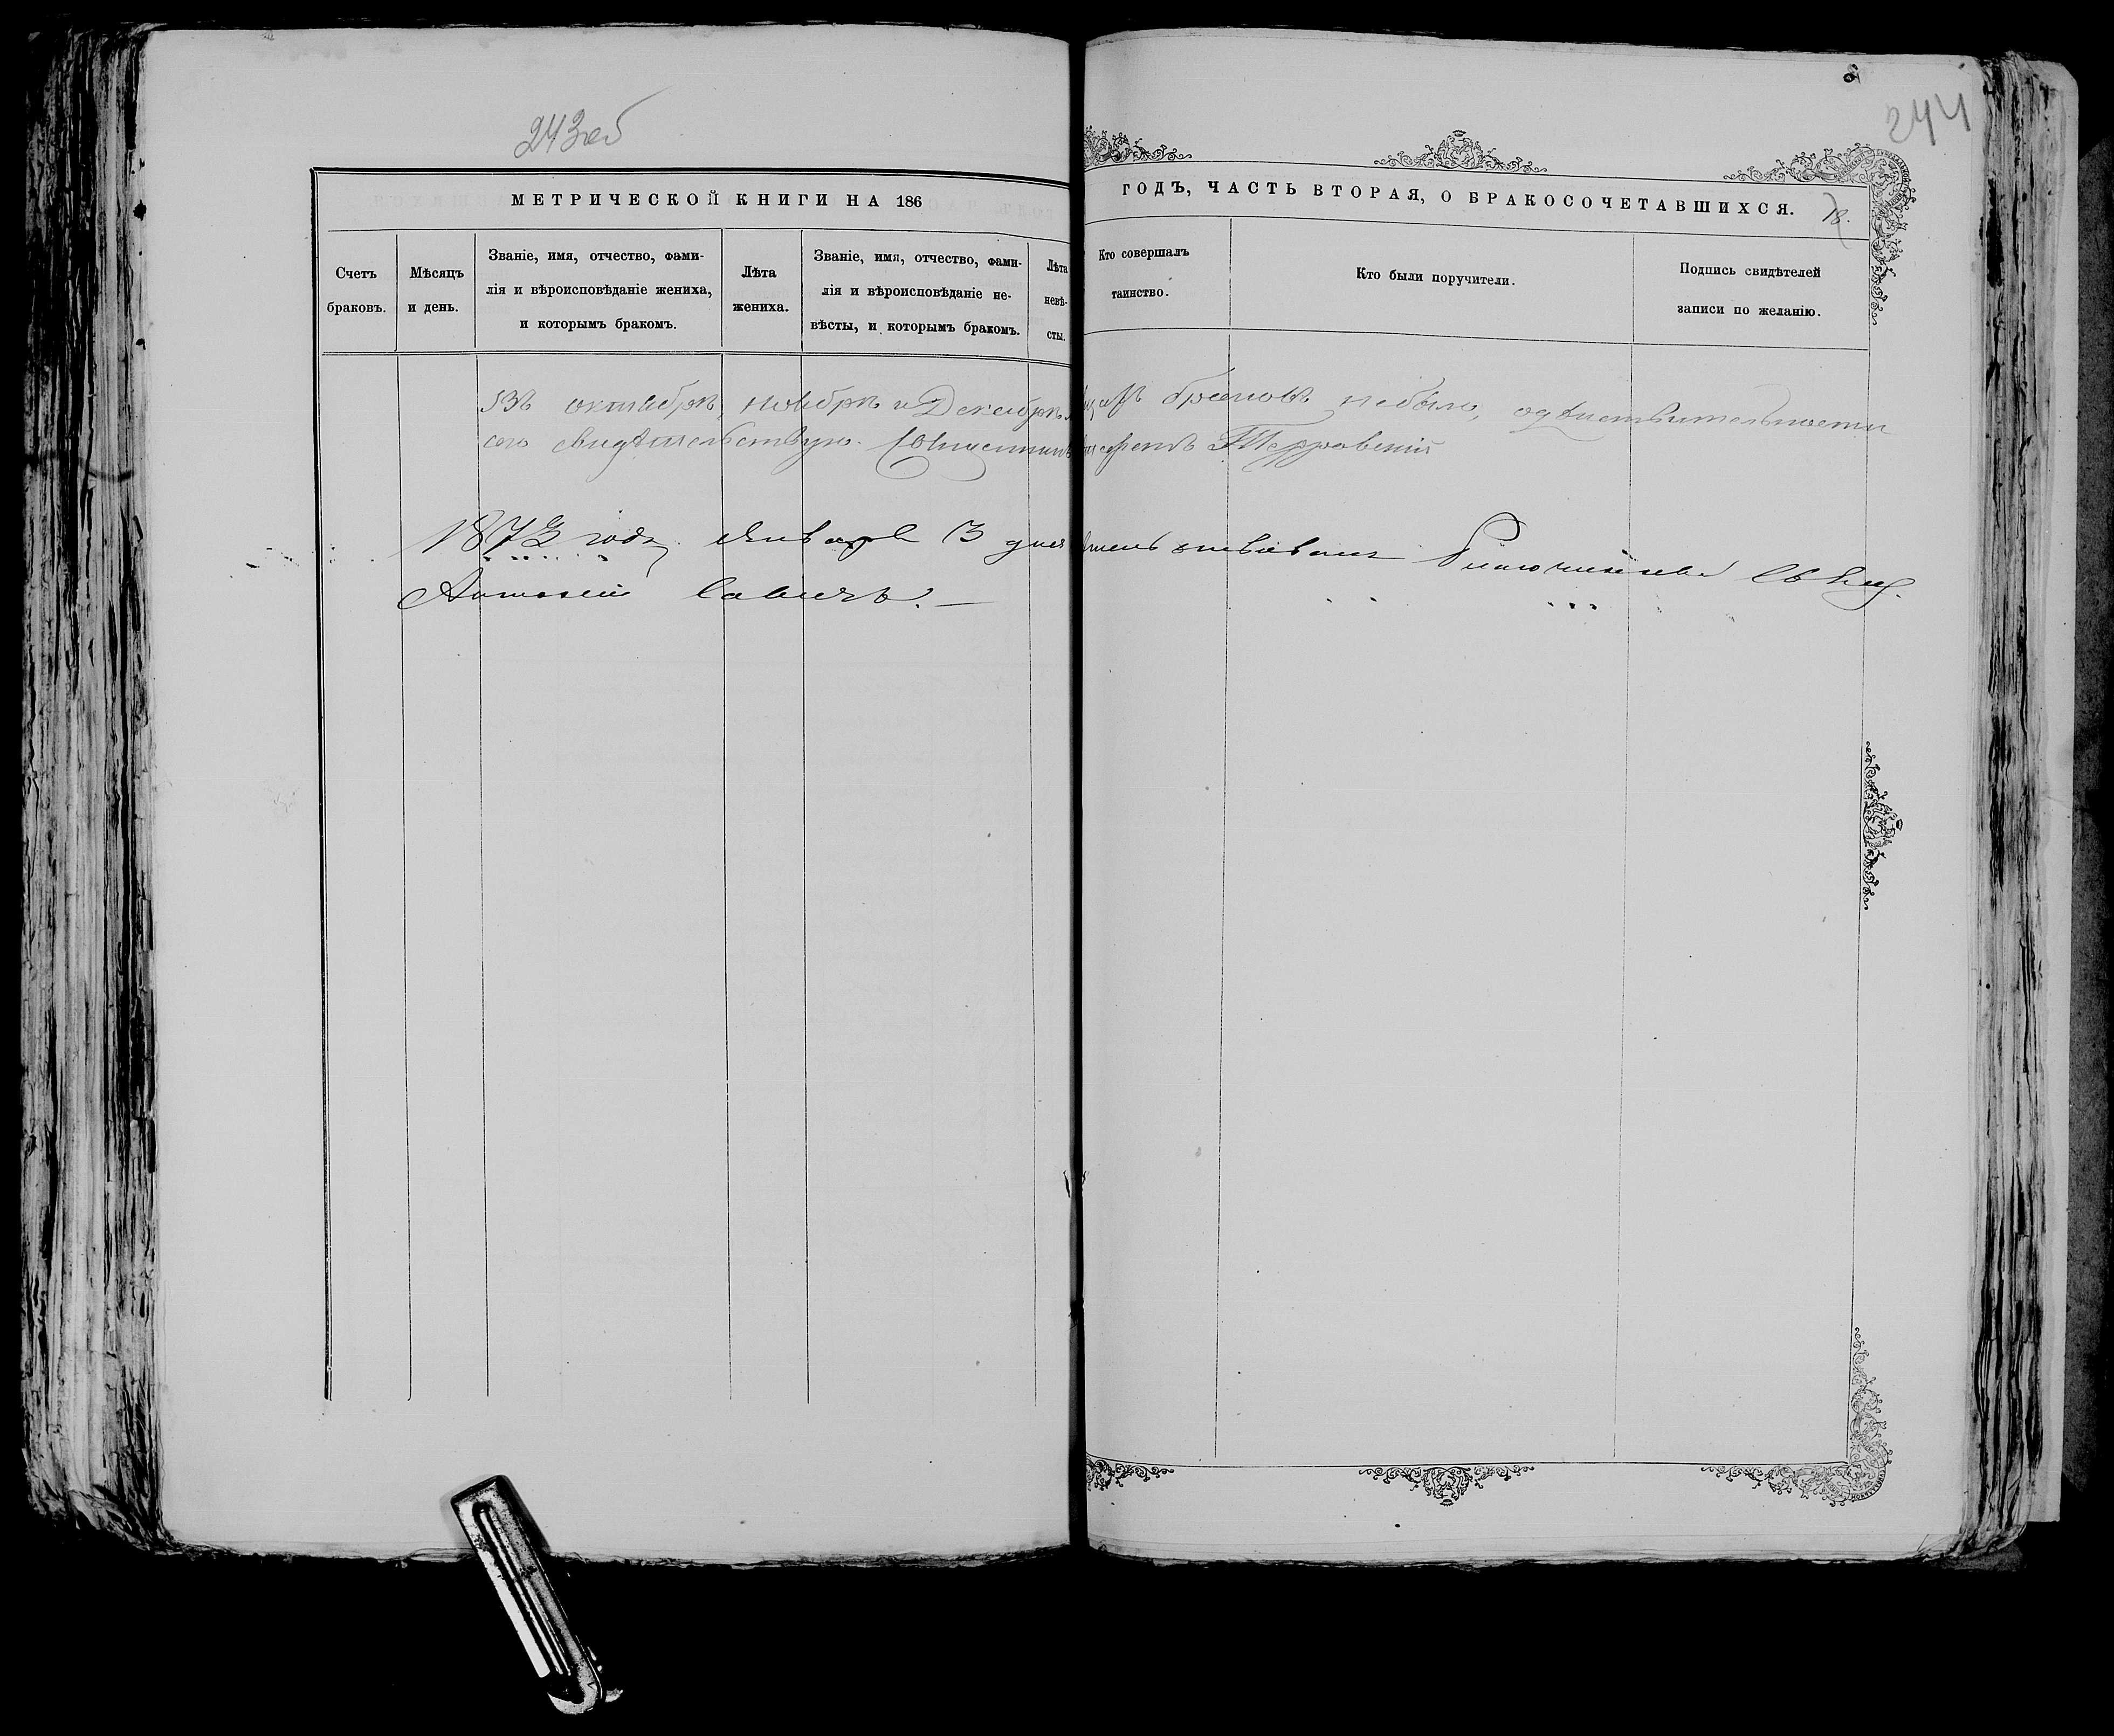 243об
244
МЕТРИЧЕСКОЙ КНИГИ НА 186
ГОДЪ, ЧАСТЬ ВТОРАЯ, О БРАКОСОЧЕТАВШИХСЯ.
Счетъ браковъ.
Мѣсяцъ и день.
Званіе, имя, отчество, фами-
лія и вѣроисповѣданіе жениха,
и которымъ бракомъ.
Лѣта жениха.
Званіе, имя, отчество, фами-
лія и вѣроисповѣданіе не-
вѣсты, и которымъ бракомъ.
Лѣта невѣ-
сты.
Кто совершалъ
таинство.
Кто были поручители.
Подпись свидѣтелей
записи по желанію.
Въ октябрѣ, ноябрѣ и Декабрѣ браковъ небыло, одѣйствительности
сего свидѣтельствую. Священникъ
1872 года Января 3 дня свидѣтельствовалъ Благочинный Свящ.
Антоній Савичъ.